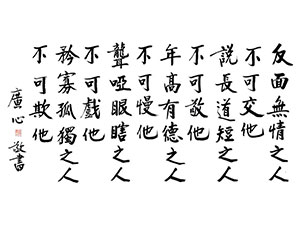 反面無情之人
不可交他
說長道短之人
不可敬他
年高有德之人
不可慢他
聾啞眼瞎之人
不可戲他
矜寡孤獨之人
不可欺他
廣心
敬書